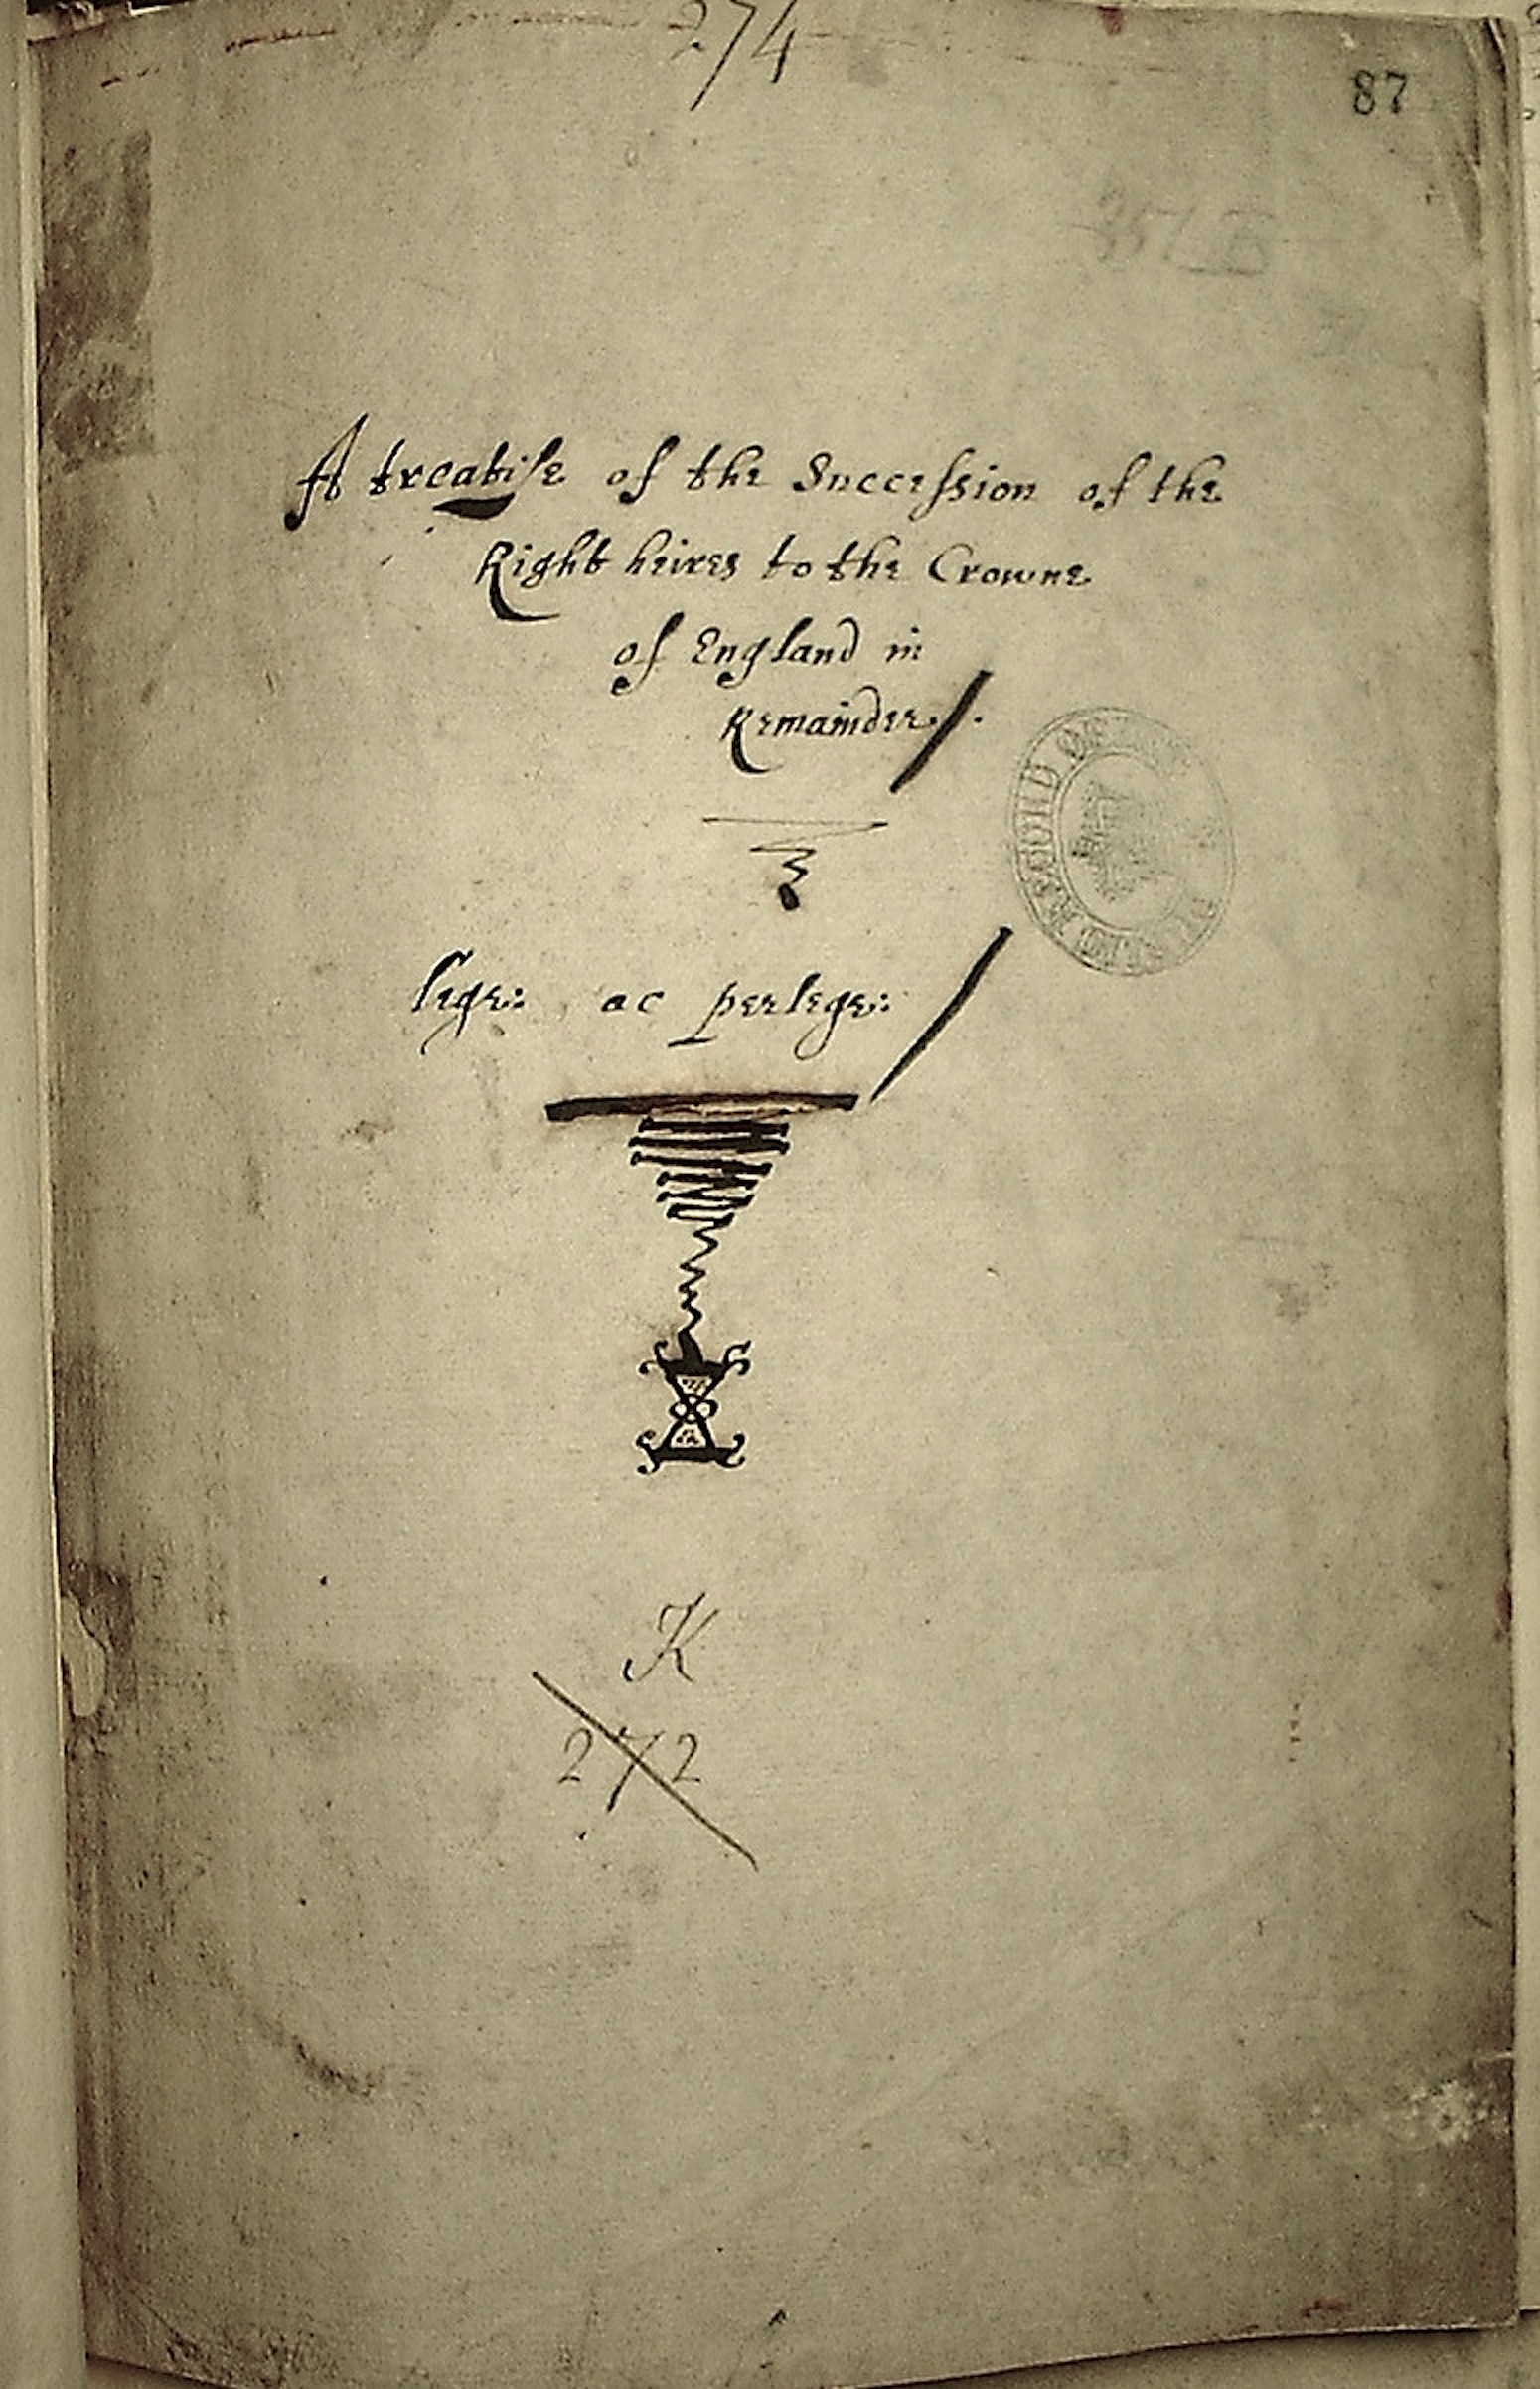 274
87
A treatise of the Succession of the
Right heires to the Crowne
of England in
Remainder./.
lege: ac perlege:
K
272